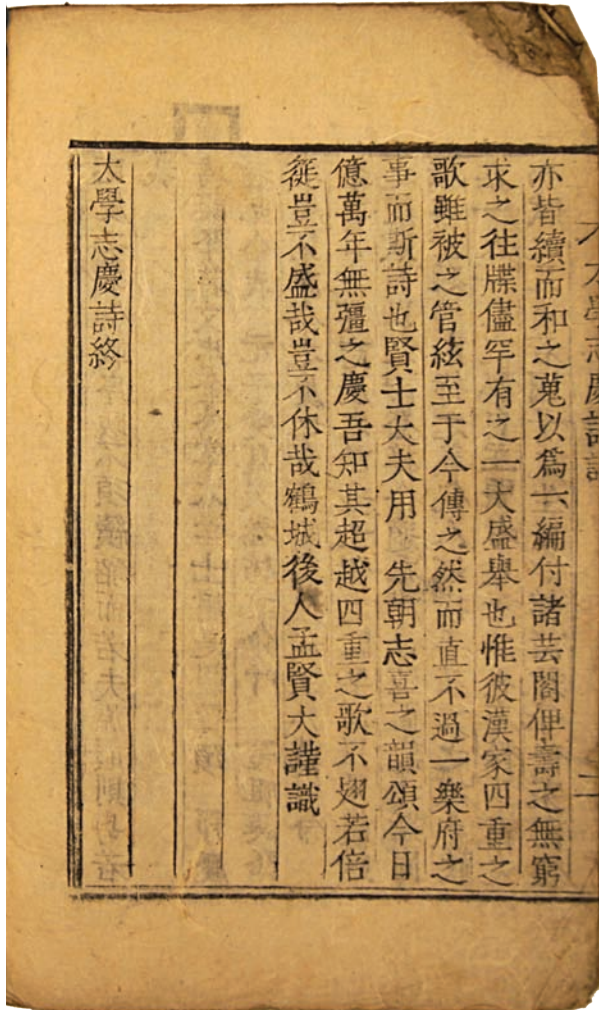 太學志慶詩
二
亦皆續而和之蒐以爲一編付諸芸閣俾壽之無窮
求之往牒儘罕有之一大盛舉也惟彼漢家四重之
歌雖被之管絃至于今傳之然而直不過一樂府之
事而斯詩也賢士大夫用 先朝志喜之韻頌今日
億萬年無彊之慶吾知其超越四重之歌不翅若倍
蓰豈不盛哉豈不休哉鶴城後人孟賢大謹識
太學志慶詩終